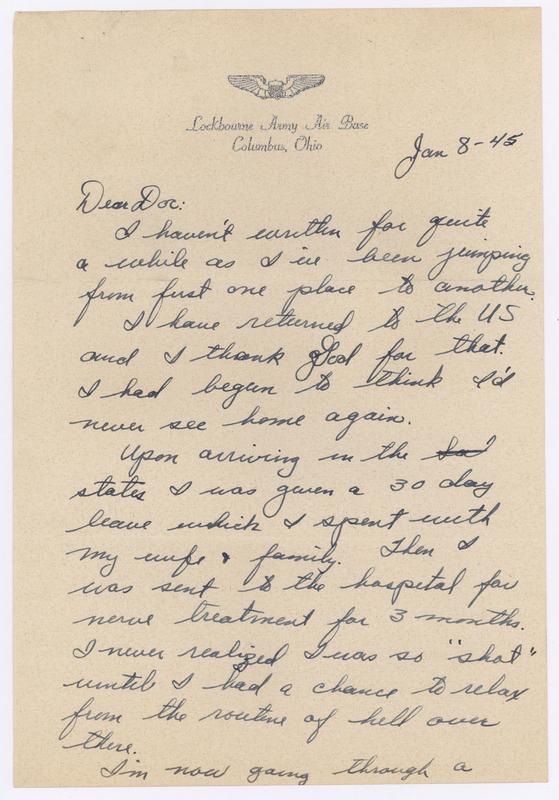 Lockbourne Army Air Base
Columbus, Ohio
Jan 8-45
Dear Doc:
I haven't written for quite
a while as I've been jumping
from first one place to another.
I have returned to the US
and I thank God for that.
I had begun to think I'd
never see home again.
Upon arriving in the
states I was given a 30 day
leave which I spent with
my wife & family. Then I
was sent to the hospital for
nerve treatment for 3 months.
I never realized I was so "shot"
until I had a chance to relax
from the routine of hell over
there.
I'm now going through a